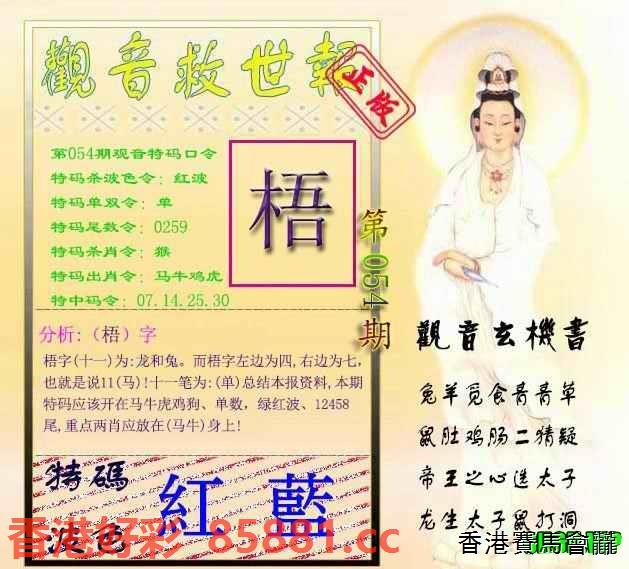 觀音救世報
正版
第054期观音特码口令
特码杀波色令：红波
特码单双令：单
特码尾数令：0259
特码杀肖令：猴
特码出肖令：马牛鸡虎
特中码令：07.14.25.30
梧
第054期
分析:（梧）字
梧字(十一)为:龙和兔。而梧字左边为四,右边为七,
也就是说11(马)!十一笔为:(单)总结本报资料,本期
特码应该开在马牛虎鸡狗、单数，绿红波、12458
尾,重点两肖应放在(马牛)身上!
觀音玄機書
兔羊觅食青青草
鼠肚鸡肠二猜疑
帝王之心选太子
龙生太子鼠打洞
特碼
波色
紅 藍
香港好彩 85881.cc
香港賽馬會